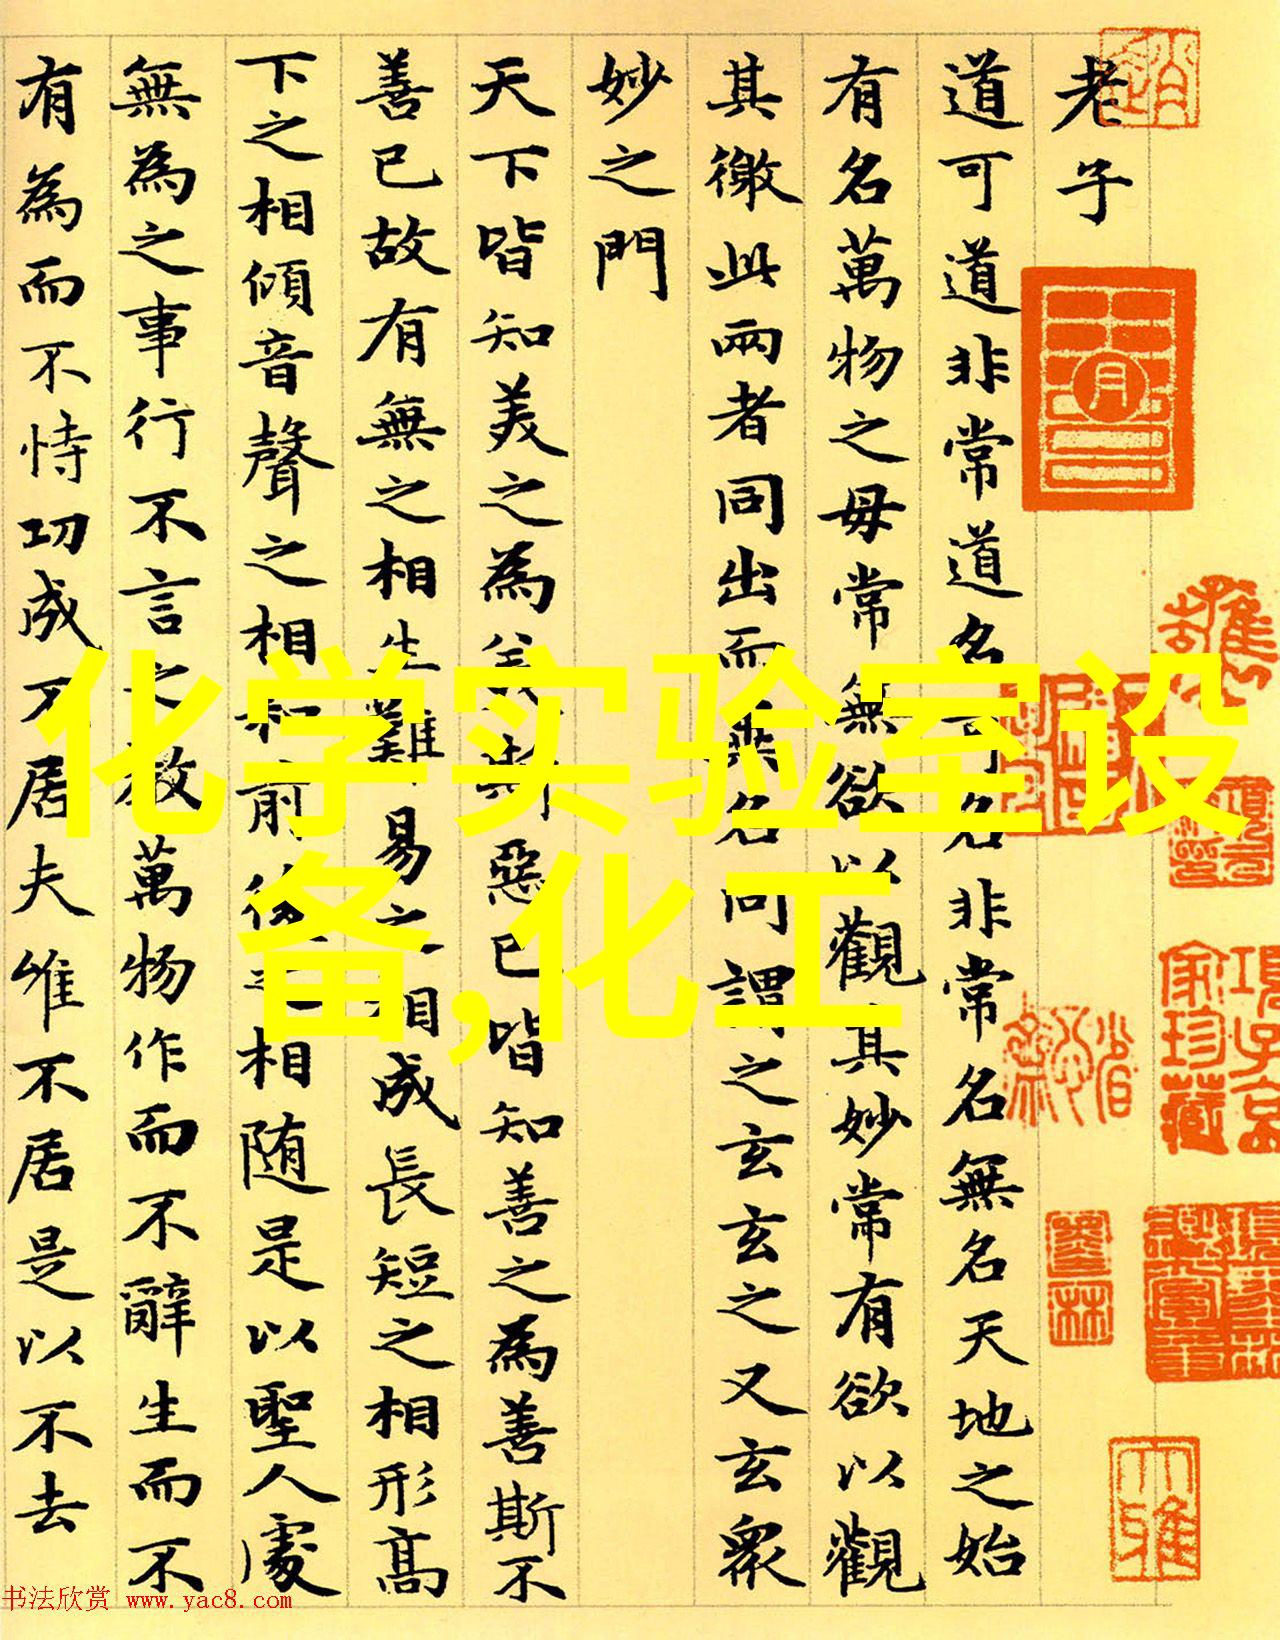 老子
道可道非常道名可名非常名無名天地之始
有名萬物之母常無欲以觀其妙常有欲以觀
其徼此兩者同出而異名同謂之玄玄之又玄衆
妙之門
天下皆知美之為美斯惡已皆知善之為善斯不
善已故有無之相生難易之相成長短之相形高
下之相傾音聲之相和前後之相随是以聖人處
無為之事行不言之教萬物作而不辭生而不
有為而不恃功成不居夫唯不居是以不去
化学实验室设
备,化工
书法欣赏 www.yac8.com